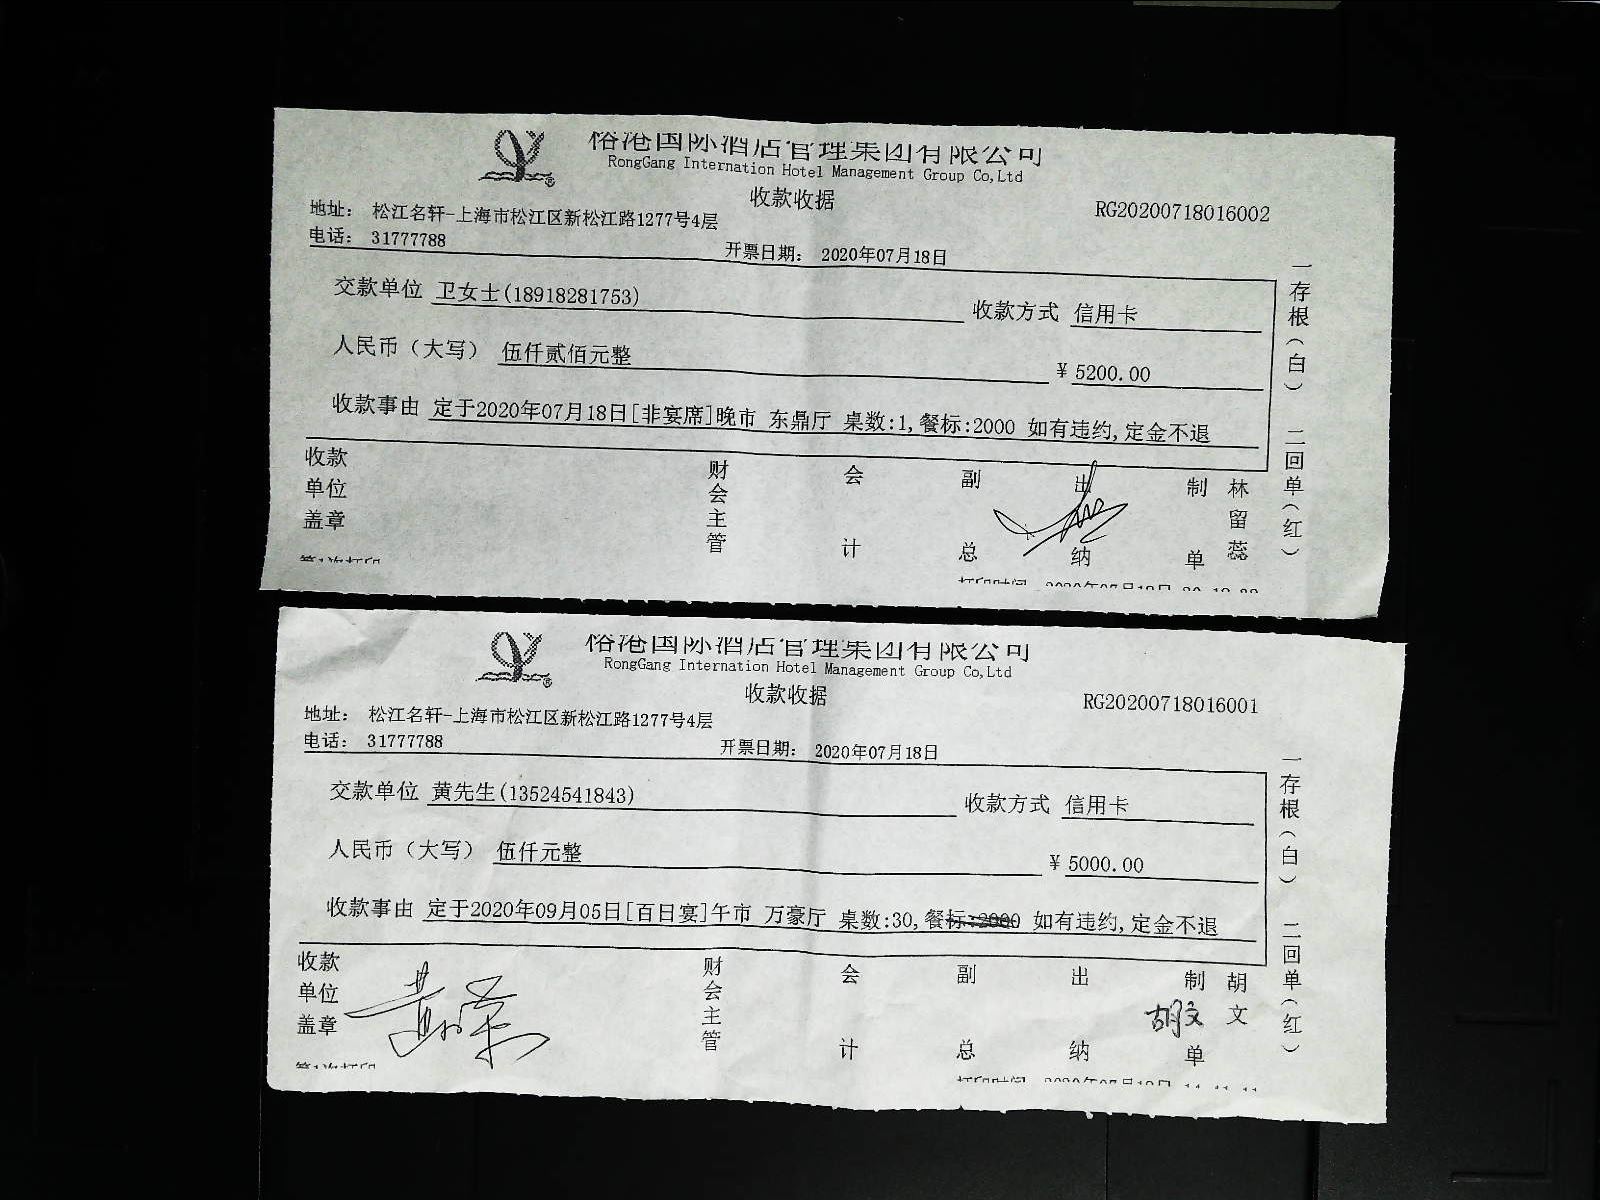 榕港国际酒店管理集团有限公司
RongGang Internation Hotel Management Group Co,Ltd
收款收据
RG20200718016002
地址： 松江名轩-上海市松江区新松江路1277号4层
电话： 31777788
开票日期： 2020年07月18日
交款单位 卫女士(18918281753)
收款方式 信用卡
人民币（大写） 伍仟贰佰元整
¥ 5200.00
收款事由 定于2020年07月18日[非宴席]晚市 东鼎厅 桌数:1,餐标:2000 如有违约,定金不退
收款单位盖章
财会主管
会计
副总
出纳
制单
林留蕊
一存根（白） 二回单（红）
第1次打印
榕港国际酒店管理集团有限公司
RongGang Internation Hotel Management Group Co,Ltd
收款收据
RG20200718016001
地址： 松江名轩-上海市松江区新松江路1277号4层
电话： 31777788
开票日期： 2020年07月18日
交款单位 黄先生(13524541843)
收款方式 信用卡
人民币（大写） 伍仟元整
¥ 5000.00
收款事由 定于2020年09月05日[百日宴]午市 万豪厅 桌数:30,餐标:2000 如有违约,定金不退
收款单位盖章
财会主管
会计
副总
出纳
制单
胡文
胡文
一存根（白） 二回单（红）
第1次打印